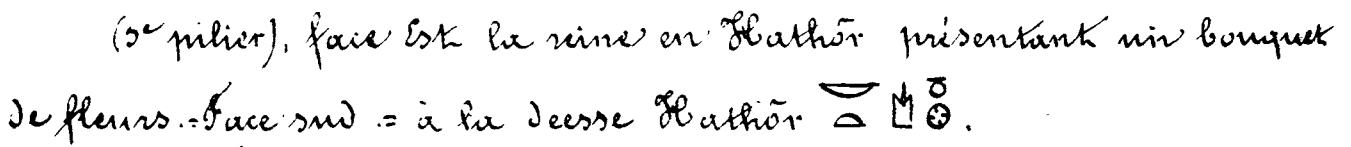 (3e pilier), face Est la reine en Hathōr présentant un bouquet
de fleurs.=Face sud .= à la deesse Hathōr 𓎟 𓏏 𓊖.